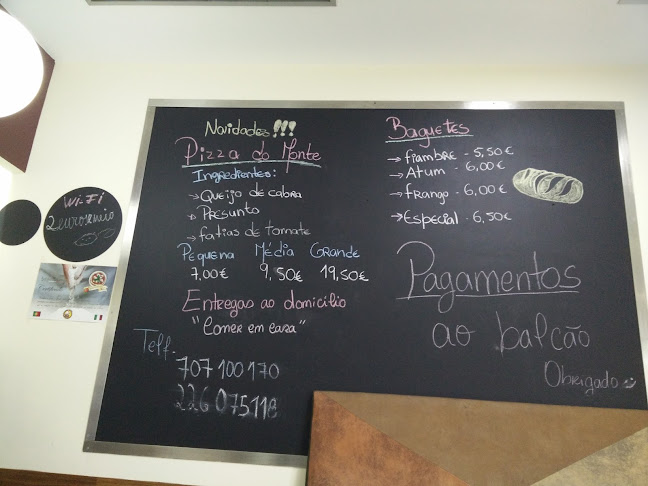 Wi-Fi
2euro&meio
Novidades!!!
Pizza do Monte
Ingredientes:
→ Queijo de cabra
→ Presunto
→ fatias de tomate
Pequena Média Grande
7,00€ 9,50€ 19,50€
Entregas ao domicílio
"Comer em casa"
Telf.
707 100 170
226 075118
Baguetes
→ fiambre - 5,50€
→ Atum - 6,00€
→ frango - 6,00€
→ Especial - 6,50€
Pagamentos
ao balcão
Obrigado